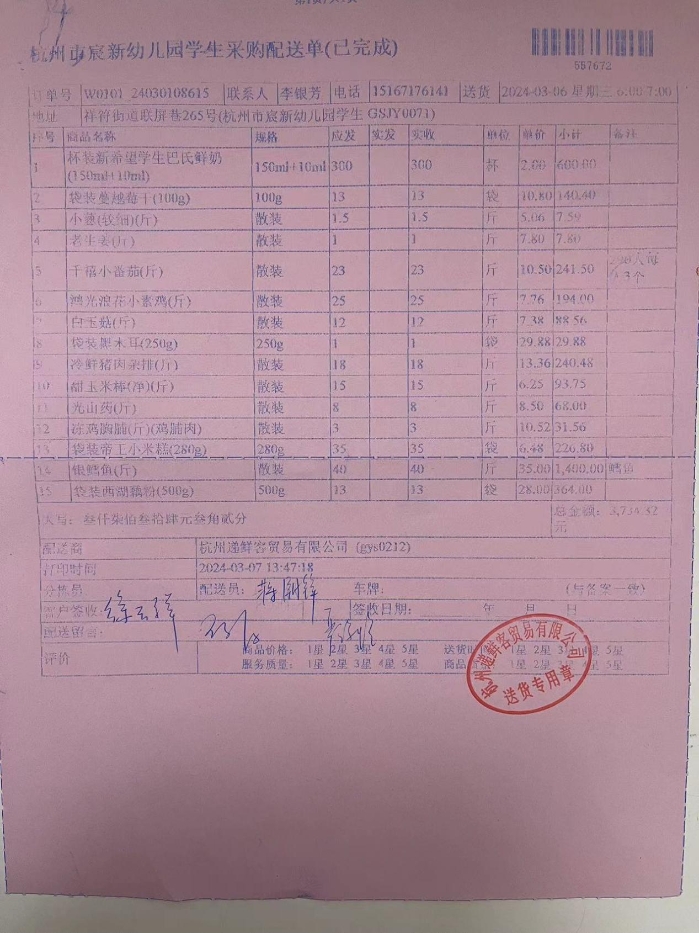 杭州市宸新幼儿园学生采购配送单(已完成)
557672
订单号 W0101_24030108615 联系人 李银芳 电话 15167176141 送货 2024-03-06 星期三 6:00-7:00
地址 祥符街道联屏巷265号(杭州市宸新幼儿园学生 GSJY0071)
序号 商品名称 规格 应发 实发 实收 单位 单价 小计 备注
1 杯装新希望学生巴氏鲜奶(150ml+10ml) 150ml+10ml 300 300 杯 2.00 600.00
2 袋装蔓越莓干(100g) 100g 13 13 袋 10.80 140.40
3 小葱(较细)(斤) 散装 1.5 1.5 斤 5.06 7.59
4 老生姜(斤) 散装 1 1 斤 7.80 7.80
5 千禧小番茄(斤) 散装 23 23 斤 10.50 241.50
6 鸿光浪花小素鸡(斤) 散装 25 25 斤 7.76 194.00
7 白玉菇(斤) 散装 12 12 斤 7.38 88.56
8 袋装黑木耳(250g) 250g 1 1 袋 29.88 29.88
9 冷鲜猪肉杂排(斤) 散装 18 18 斤 13.36 240.48
10 甜玉米棒(净)(斤) 散装 15 15 斤 6.25 93.75
11 光山药(斤) 散装 8 8 斤 8.50 68.00
12 冻鸡胸脯(斤)(鸡脯肉) 散装 3 3 斤 10.52 31.56
13 袋装帝王小米糕(280g) 280g 35 35 袋 6.48 226.80
14 银鳕鱼(斤) 散装 40 40 斤 35.00 1,400.00 鳕鱼
15 袋装西湖藕粉(500g) 500g 13 13 袋 28.00 364.00
大写: 叁仟柒佰叁拾肆元叁角贰分 总金额: 3,734.32元
配送商 杭州递鲜客贸易有限公司 (gys0212)
打印时间 2024-03-07 13:47:18
分拣员 配送员: 车牌: (与备案一致)
客户签收: 签收日期: 年 月 日
配送留言:
评价 商品价格: 1星 2星 3星 4星 5星 送货 1星 2星 3星 4星 5星
服务质量: 1星 2星 3星 4星 5星 商品 1星 2星 3星 4星 5星
杭州递鲜客贸易有限公司
送货专用章